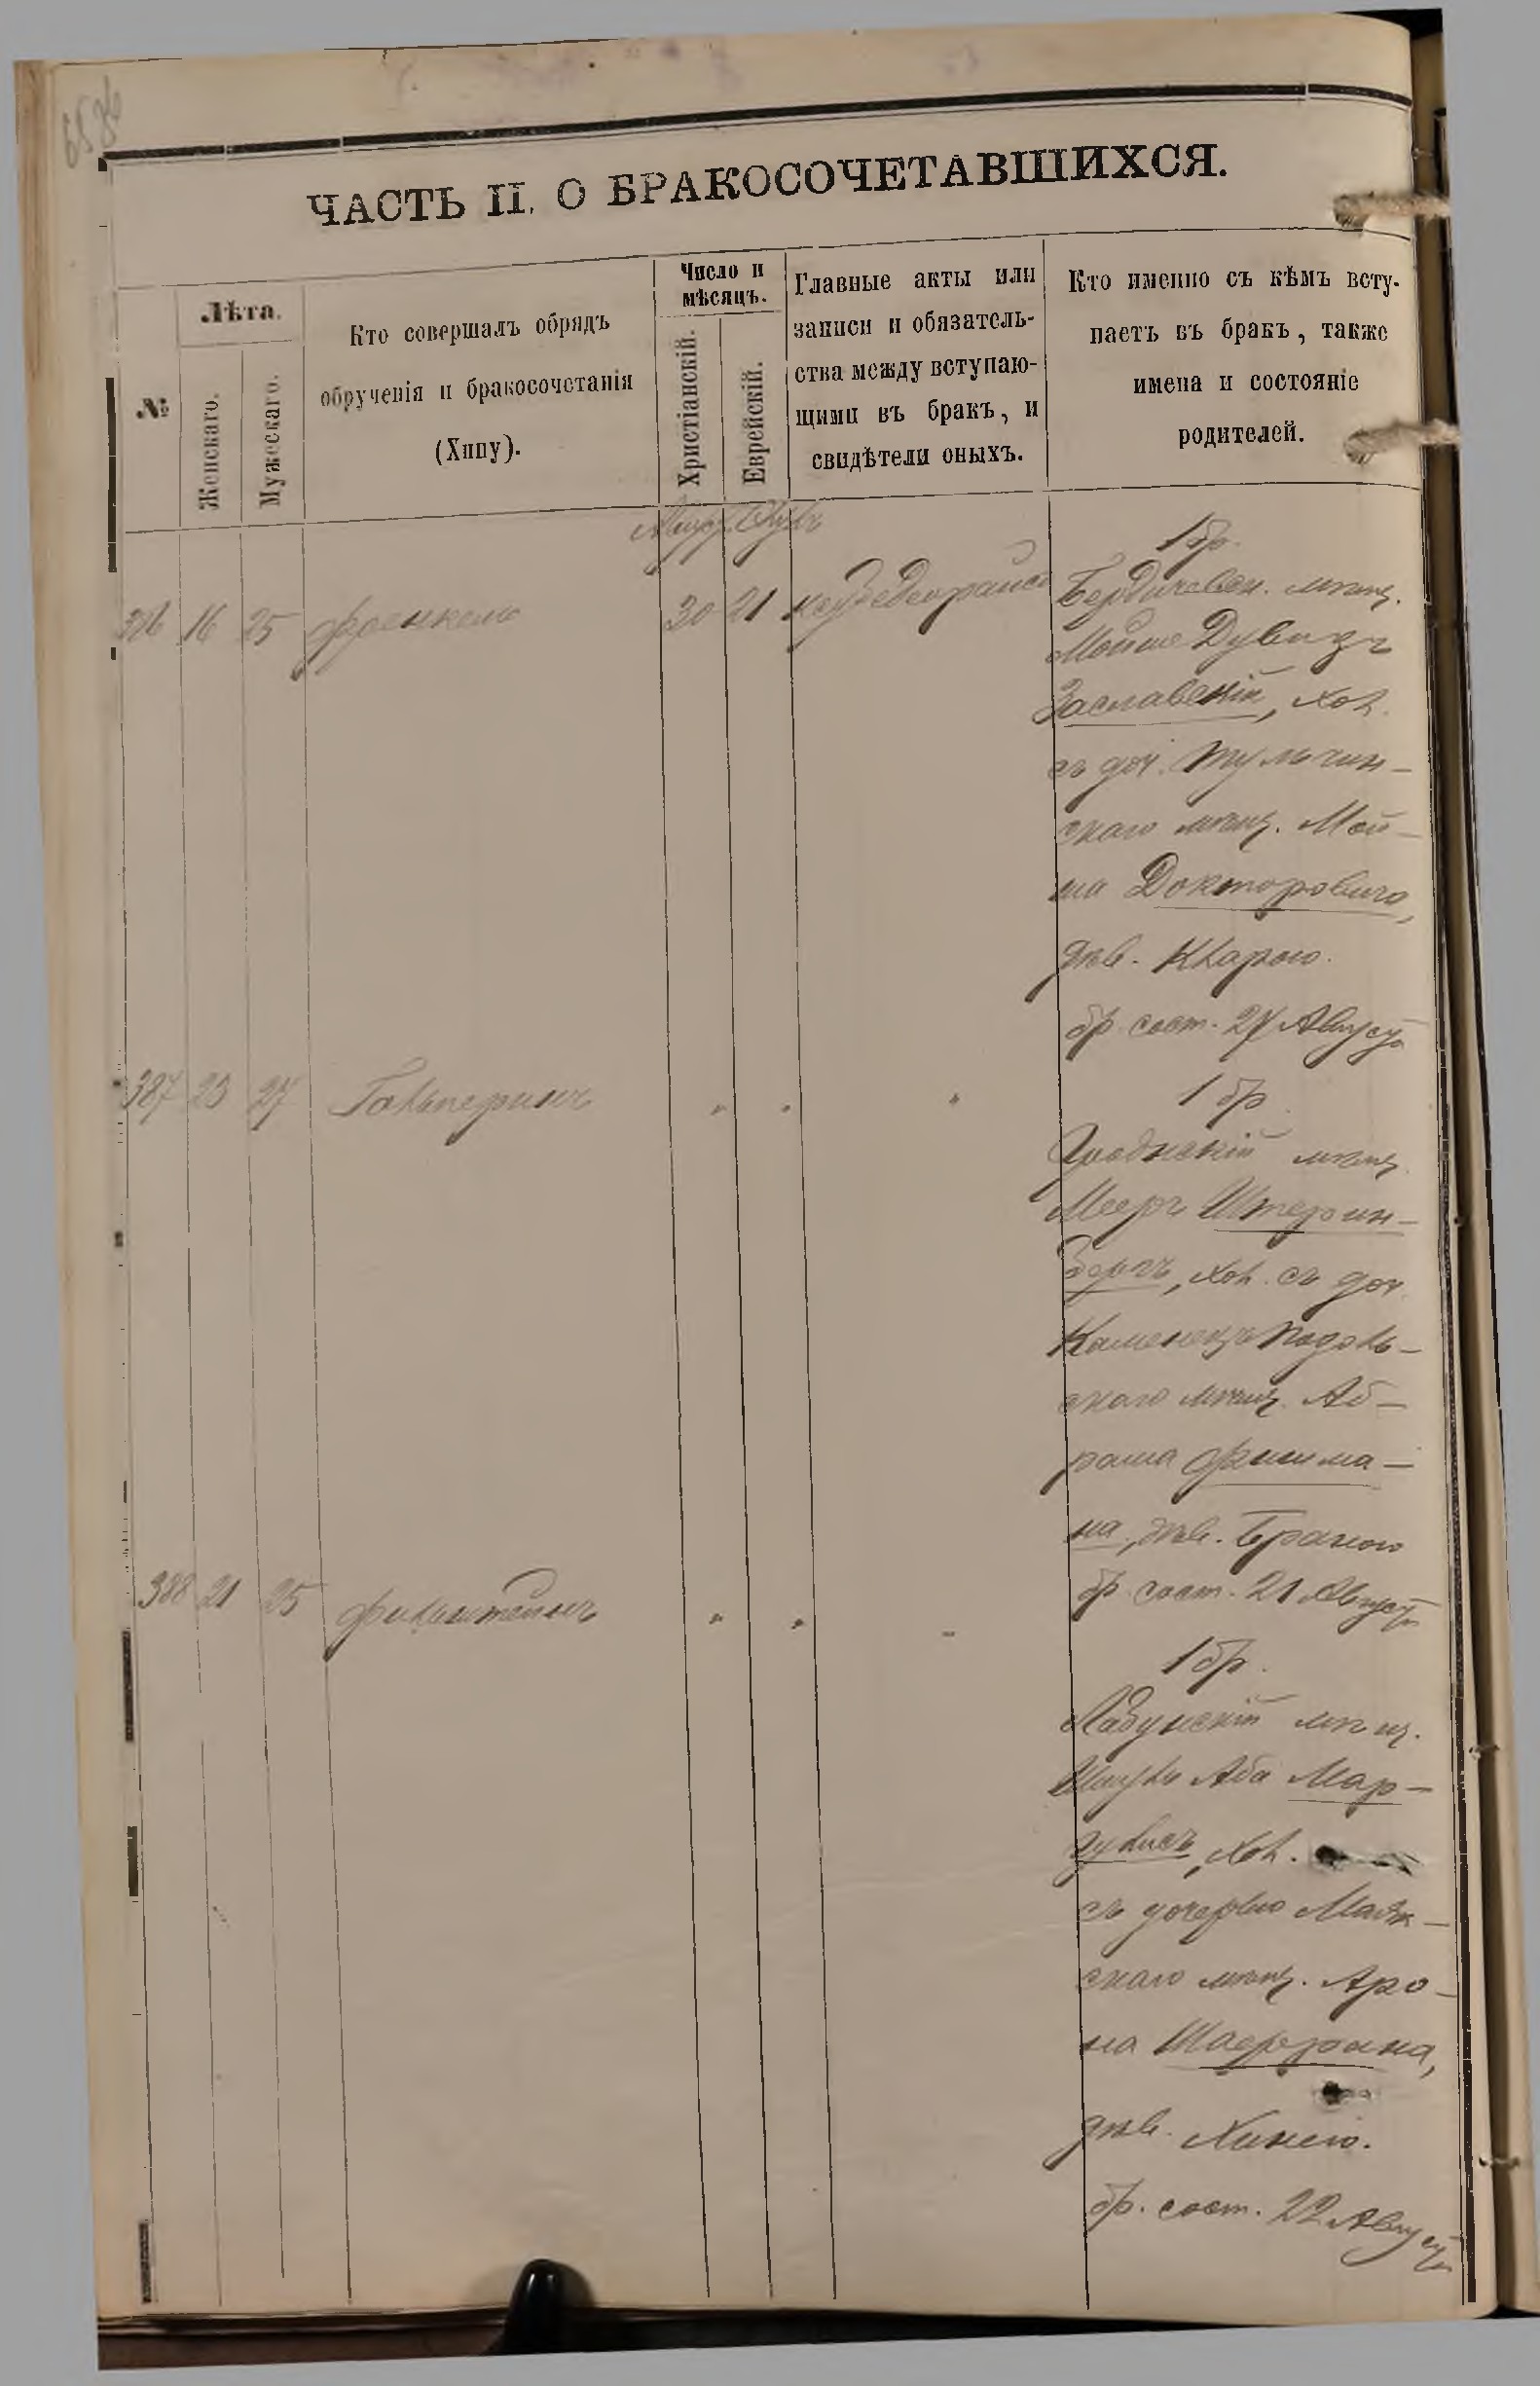 ЧАСТЬ II. О БРАКОСОЧЕТАВШИХСЯ.
№
Лѣта.
Женскаго.
Мужескаго.
Кто совершалъ обрядъ
обрученія и бракосочетанія
(Хипу).
Число и
мѣсяцъ.
Христіанскій.
Еврейскій.
Главные акты или
записи и обязатель-
ства между вступаю-
щими въ бракъ, и
свидѣтели оныхъ.
Кто именно съ кѣмъ всту-
паетъ въ бракъ, также
имена и состояніе
родителей.
386 16 25 Френкель 30 21
1 бр.
Бердичевск. мѣщ.
Мойше Дувидъ
Заславскій, хол.
съ доч. Тульчин-
скаго мѣщ. Мой-
ша Докторовича,
дѣв. Кларою.
бр. сост. 27 Август
387 23 27 Гальперинъ " " "
1 бр.
Гроднскій мѣщ.
Мееръ
бергъ, хол. съ доч.
Каменецъ Подоль-
скаго мѣщ. Аб-
рама Фишма-
на, дѣв.
бр. сост. 21 Август
388 21 25 Финкельштейнъ " " "
1 бр.
Лабунскій мѣщ.
Шмуль Аба Мар-
гулисъ, хол.
съ дочерью
скаго мѣщ. Аро-
на
дѣв. Хинею.
бр. сост. 22 Август